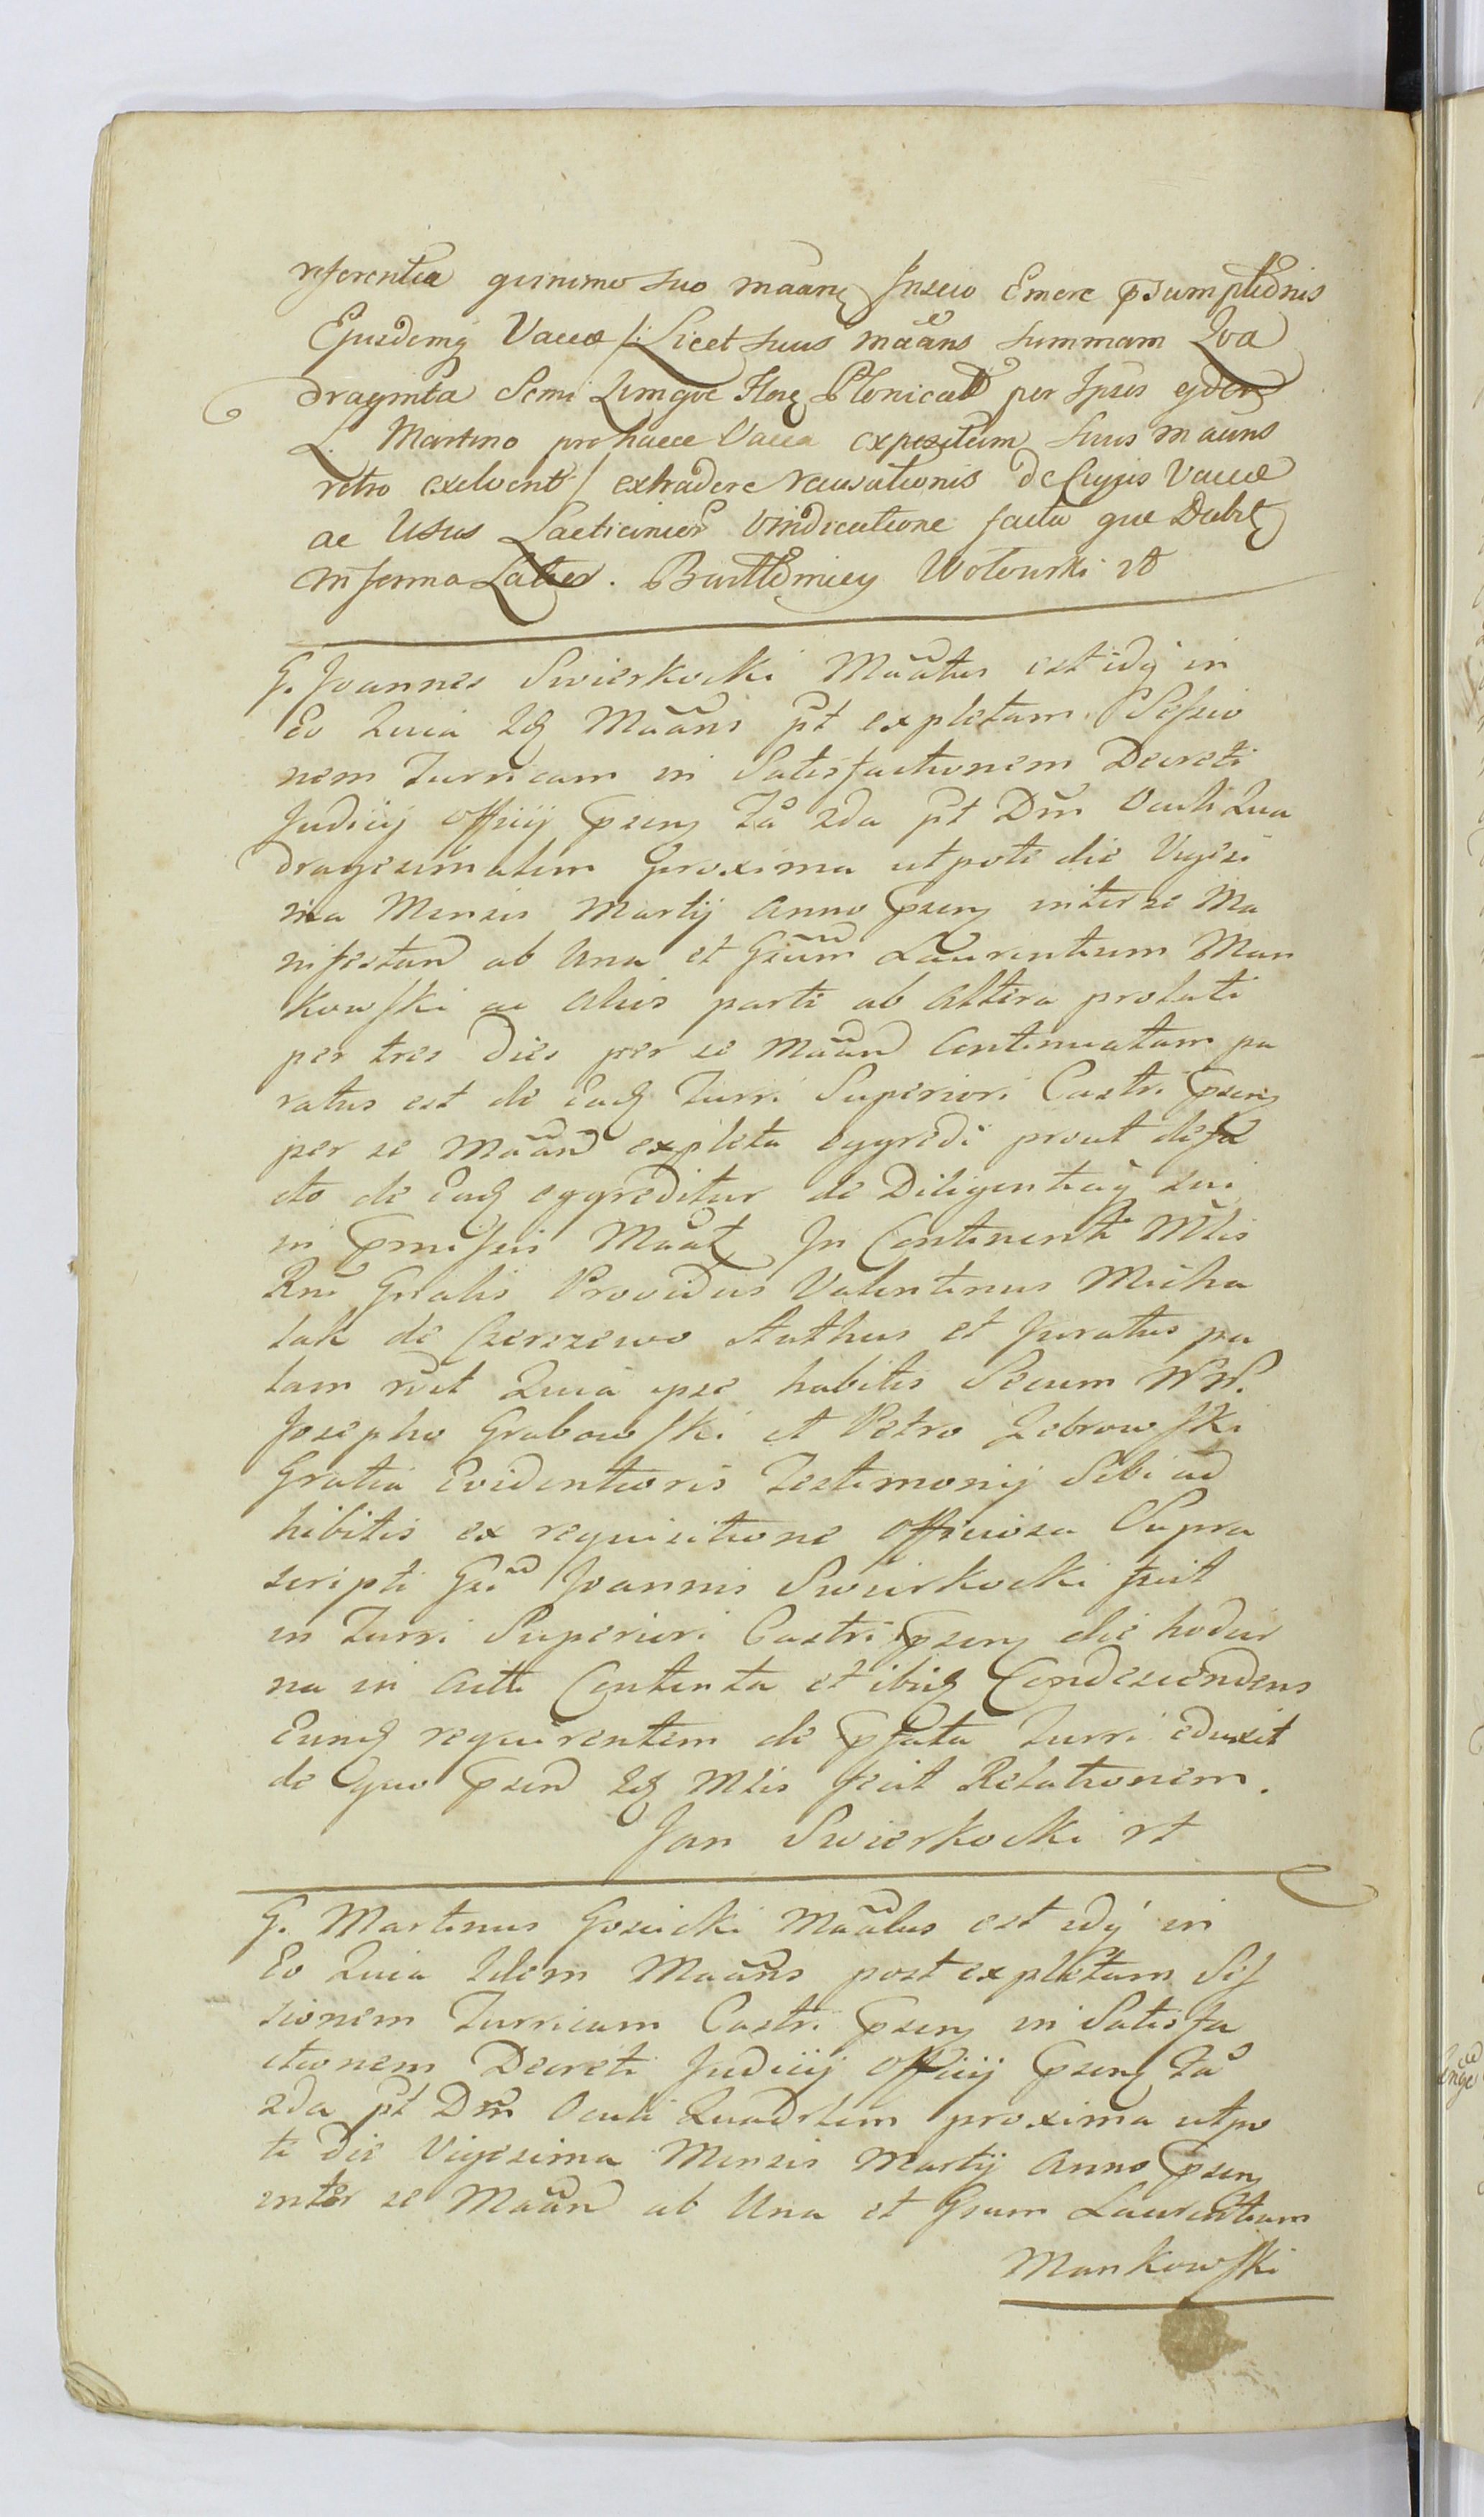 referentia quinimo suo maanẽ Inscio Emere prsumptiõnis
Ejusdemq Vacca /: Licet suus mãans summam Qva
draginta Semi Qumqve Flor Plonical per Ipsos
L. Martino pro haece Vacca expositum suus mãans
retro exolvent / extradere recusationis de Cujus Vaccæ
ac Usus Lacticinior vindicatione facta que Debit
in forma Latior. Bartłomiey Wołowski
G. Joannes Swierkocki Mããtus est idq in
Eo Quia Idq Mããns pt expletam Sessio
nem Turricam in Satisfactionem Decreti
Judicij Officij prsens Fa 2da pt Dm Oculi Qua
dragesimalem proxima utpote die Vigesi
ma Mensis Martij Anno prsen inter se Ma
nifestan ab Una et Gsum Laurentium Man
kowski ac Alias parti ab Altera prolati
per tres Dies per se Mããn Continuatam pa
ratus est de Eadq Turri Superiori Castri prsen
per se Mããn expleta eggredi prout defa
cto de Eadq eggreditur de Diligentiaq sui
in prmissis Mããt In Continenti Mlis
Rni Gnalis Providus Valentinus Micha
lak de Czerszewo Authus et Juratus pa
lam rlt Quia ipse habitis Secum NN.
Josepho Grabowski et Petro Zebrowski
Gratia Evidentioris Testimonij Sibi ad
hibitis ex requisitione Officiosa Supra
scripti Gsi Joannis Swierkocki fuit
in Turri Superiori Castri prsen die hodier
na in Actu Contenta et ibiq Condescendens
Eunq requirentem de prfata Turri eduxit
de quo prsen Idq Mlis fecit Relationem.
Jan Swierkocki
G. Martinus Gosicki Mããtus est idq in
Eo Quia Idem Mããns post expletam Ses
sionem Turricam Castri prsen in Satisfa
ctionem Decreti Judicij Officij prsen Fa
2da pt Dm Oculi Quadrlem proxima utpo
te die Vigesima Mensis Martij Anno prsen
inter se Mããn ab Una et Gsum Laurentium
Mankowski